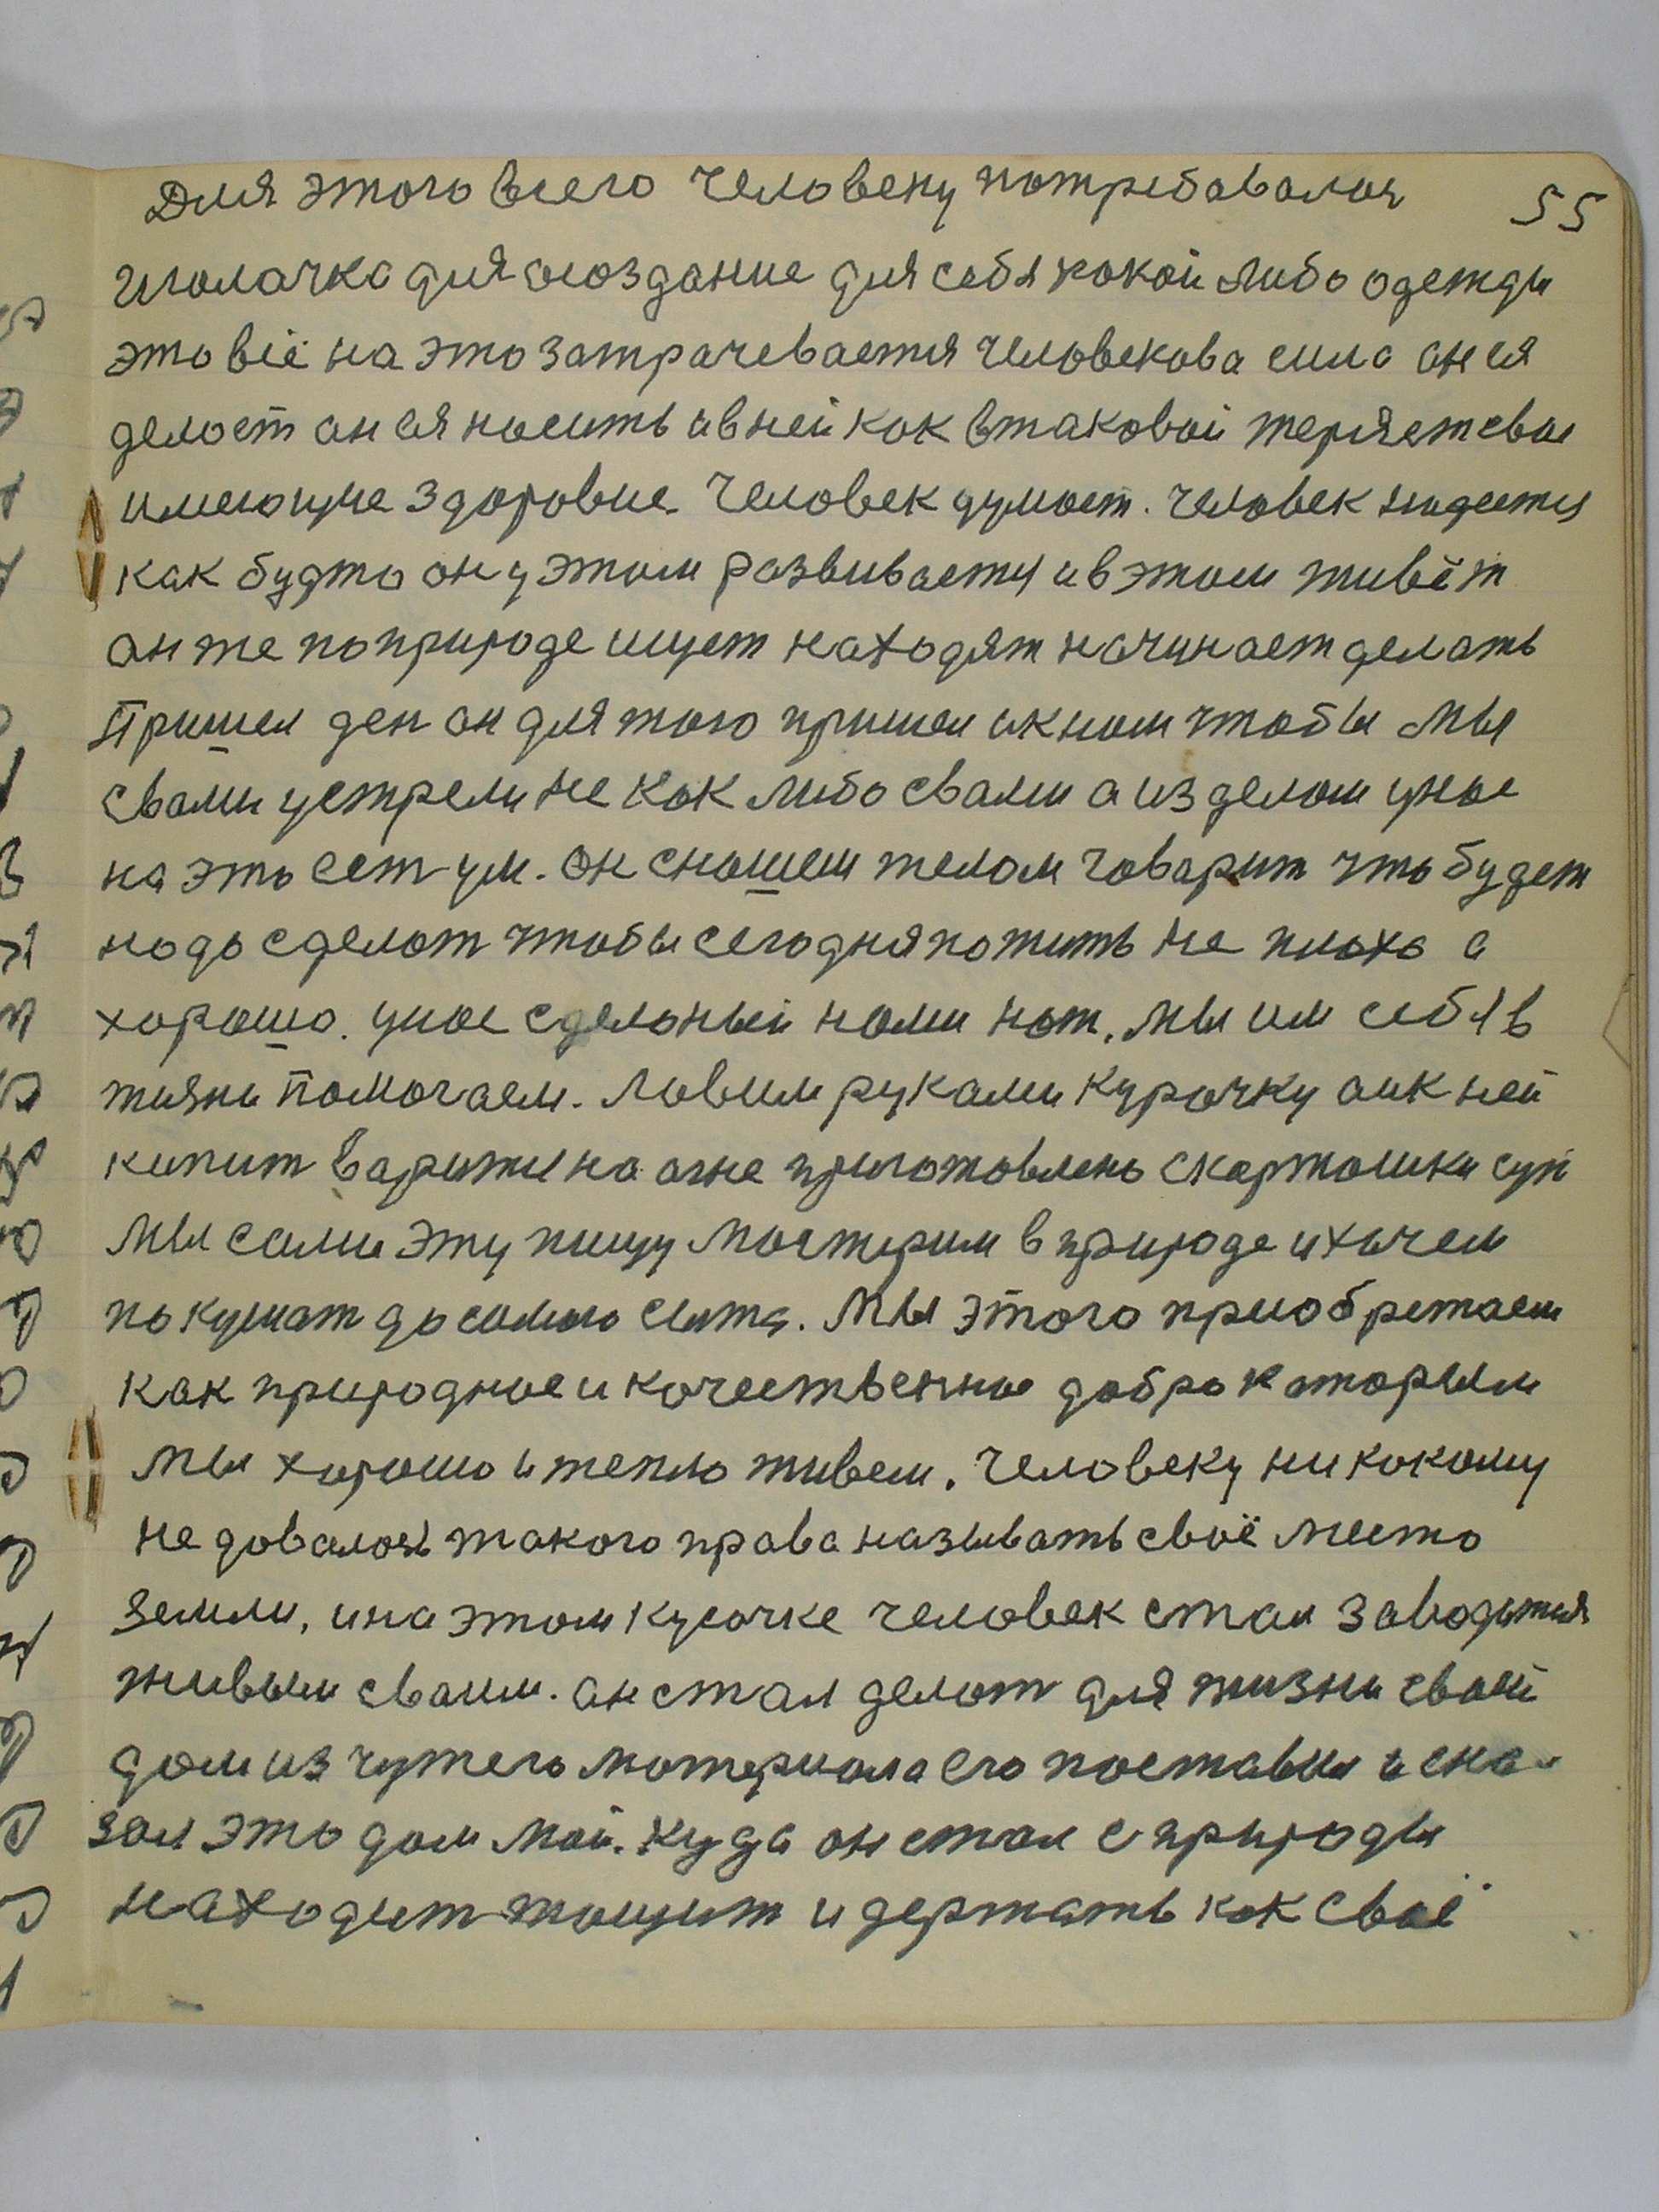 Для этого всего человеку потребавалося 55
иголачка для созздание для себя какой либо одежды
это всё на это затрачевается человекова сила он ея
делает он ея носить и в ней как в таковой теряет свае
имеющие здоровие. Человек думает. Человек надеется
как будто он у этом развивается и в этом живёт
он же по природе ищет находят начинает делать
Пришел ден он для того пришел и к нам чтобы мы
с вами устрели не как либо с вами а из делом у нас
на это ест ум. Он с нашем телом говарит что будет
надо сделат чтобы сегодня пожить не плохо а
хорошо. у нас сделаный нами нож. мы им себя в
жизни помогаем. Ловим руками курочку а ик ней
кипит варится на огне приготовлено с картошки суп
мы сами эту пищу мастерим в природе и хочем
покушат до самого сыта. Мы этого приобретаем
как природное и качественное добро каторым
мы хорошо и тепло живем. Человеку никакому
не довалось такого права называть своё место
земли, и на этом кусочке человек стал заводится
живым сваим. он стал делат для жизни своей
дом из чужего материала его поставил и ска-
зал это дом мой. куда он стал с природы
находит тащит и держать как своё